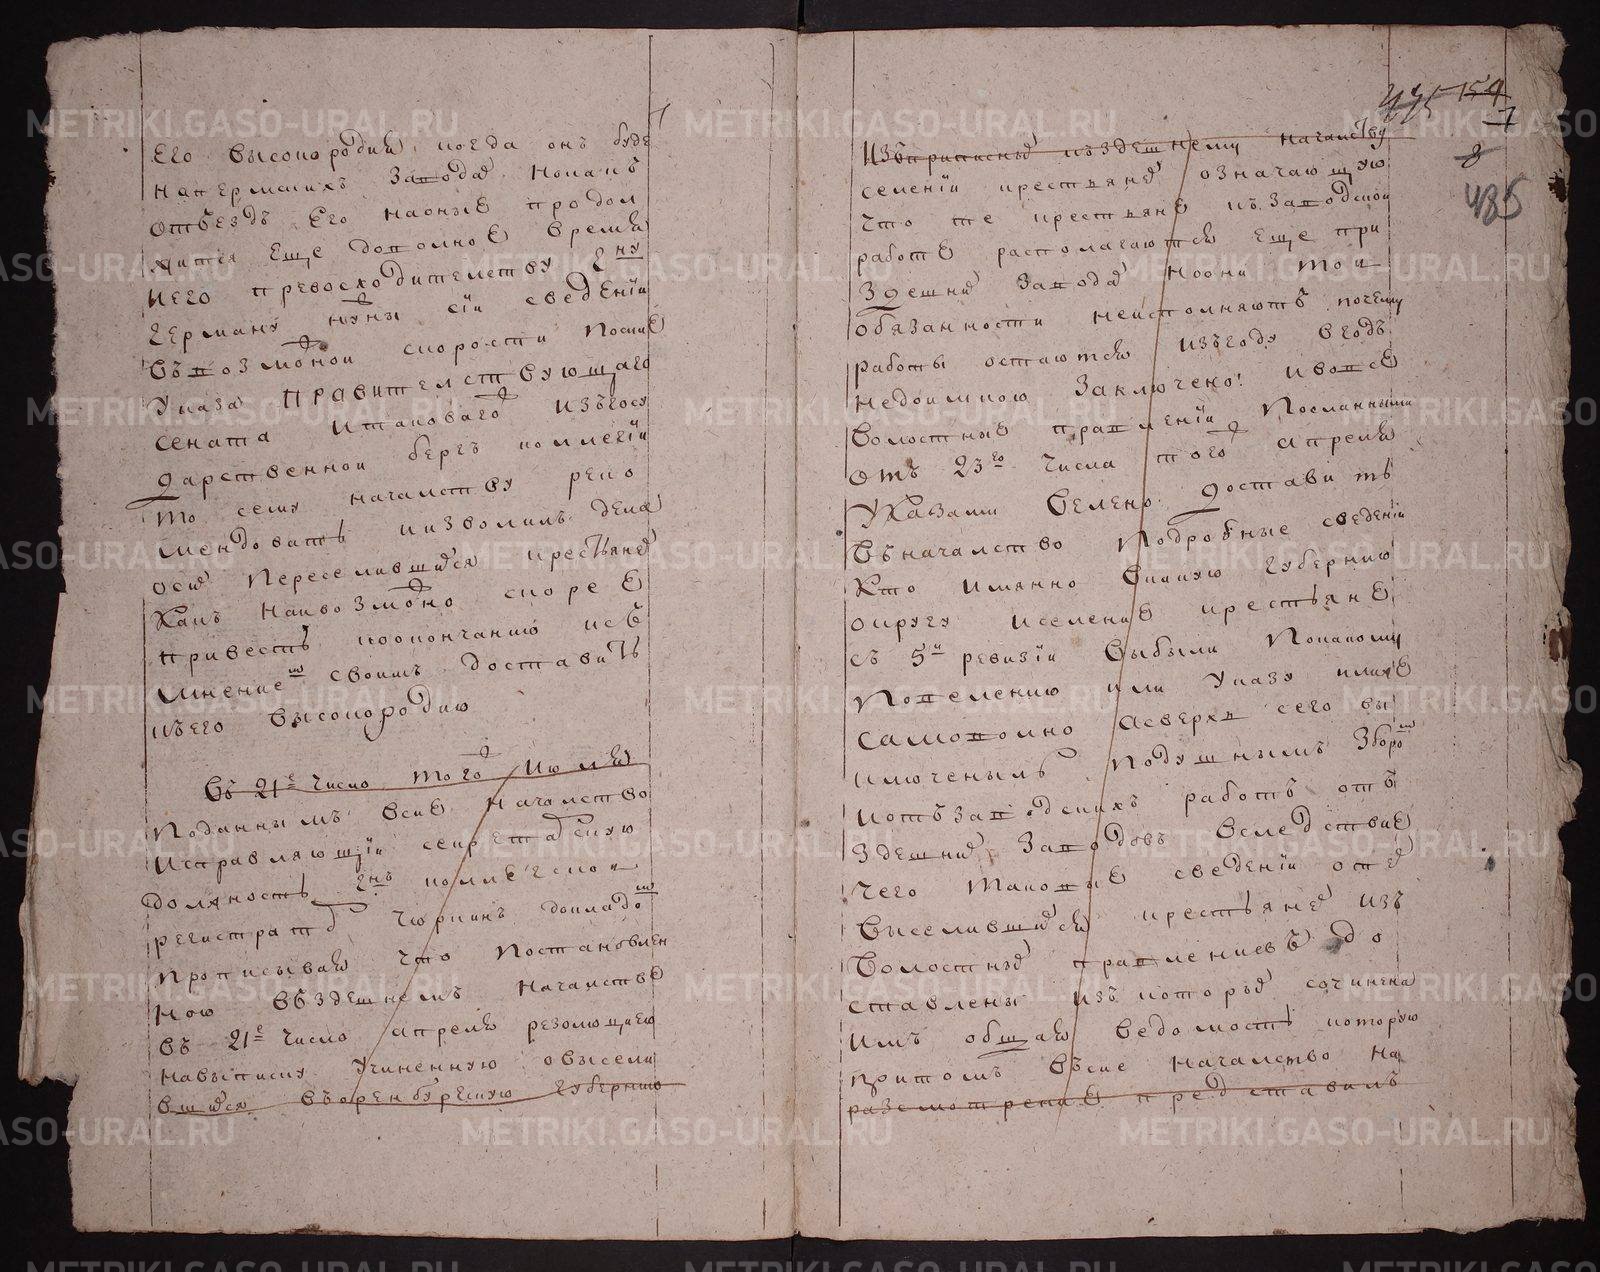 Его высокородия когда онъ буде
наперьмскихъ заводахъ ноказъ
отъездъ его наоные продол
жится еще дополное время
кего превосходителству гну
герману нужны сіи сведеніи
възможной скорости После
указа Правителствующаго
сената итаковаго изъгосу
дарственной бергъ коллегіи
то сему началству реко
мендовать изволилъ дела
осихъ переселившихся крестьянехъ
какъ наивозможно скорее
привесть коокончанию исъ
мнениемъ своимъ доставить
къего высокородию
Въ 21е число того июля
Поданнымъ всие началство
исправляющій секретарскую
должность гнъ коллежской
регистраторъ докладомъ
прописывая что постановлен
ною въздешнемъ началстве
въ 21е число апреля резолюциею
навыписку учиненную овысели
вшихся въоренбурскую губернию
Изъприписныхъ къздешнему началству
селеніи крестьянехъ означающую
что те крестьяне къзаводской
работе располагаются еще при
здешнихъ заводахъ ноони той
обязанности неисполняютъ почему
работы остаются изъгоду вгодъ
недоимкою Заключено: ивовсе
волостные правленіи посланными
отъ 23го числа того апреля
указами велено доставить
въначалство подробные сведеніи
кто имянно вкакую губернию
округу иселение крестьяне
съ 5й ревизіи выбыли покакому
повелению или указу илиже
самоволно асверхъ сего вы
ключенымъ подушнымъ зборомъ
иотъзаводскихъ работъ отъ
здешнихъ заводовъ вследствие
чего таковые сведеніи отехъ
выселившихся крестьянехъ изъ
волостныхъ правлениевъ до
ставлены изъ которыхъ сочинена
имъ общая ведомость которую
притомъ въсие началство на
разсмотрение представилъ
485